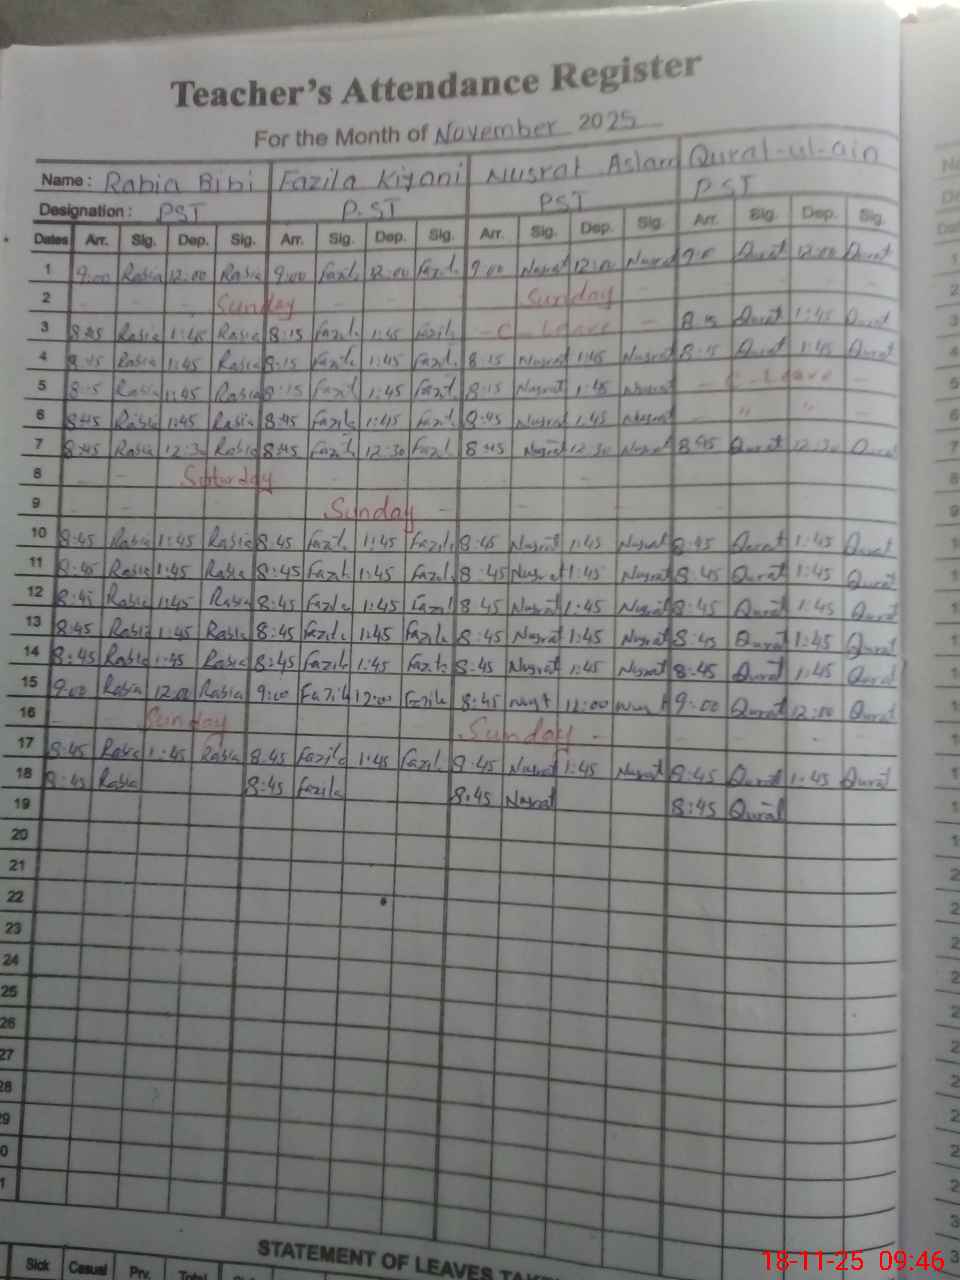 Teacher's Attendance Register
For the Month of November 2025
Name: Rabia Bibi Fazila Kiyani Nusrat Aslam Qurat-ul-ain
Designation: PST P.ST PST PST
Dates Arr. Sig. Dep. Sig. Arr. Sig. Dep. Sig. Arr. Sig. Dep. Sig. Arr. Sig. Dep. Sig.
1 9:00 Rabia 12:00 Rabia 9:00 Fazila 12:00 Fazila 9:00 Nusrat 12:00 Nusrat 9:0 Qurat 12:00 Qurat
2 Sunday Sunday
3 Rabia 1:45 Rabia 8:15 Fazila 1:45 Fazila C-Leave 8:15 Qurat 1:45 Qurat
4 Rabia 1:45 Rabia 8:15 Fazila 1:45 Fazila 8:15 Nusrat 1:45 Nusrat 8:15 Qurat 1:45 Qurat
5 8:15 Rabia 1:45 Rabia 8:15 Fazila 1:45 Fazila 8:15 Nusrat 1:45 Nusrat - C-Leave -
6 8:45 Rabia 1:45 Rabia 8:45 Fazila 1:45 Fazila 8:45 Nusrat 1:45 Nusrat - " " -
7 8:45 Rabia 12:30 Rabia 8:45 Fazila 12:30 Fazila 8:45 Nusrat 12:30 Nusrat 8:45 Qurat 12:30 Qurat
8 Saturday
9 Sunday
10 8:45 Rabia 1:45 Rabia 8:45 Fazila 1:45 Fazila 8:45 Nusrat 1:45 Nusrat 8:45 Qurat 1:45 Qurat
11 8:45 Rabia 1:45 Rabia 8:45 Fazila 1:45 Fazila 8:45 Nusrat 1:45 Nusrat 8:45 Qurat 1:45 Qurat
12 8:45 Rabia 1:45 Rabia 8:45 Fazila 1:45 Fazila 8:45 Nusrat 1:45 Nusrat 8:45 Qurat 1:45 Qurat
13 8:45 Rabia 1:45 Rabia 8:45 Fazila 1:45 Fazila 8:45 Nusrat 1:45 Nusrat 8:45 Qurat 1:45 Qurat
14 8:45 Rabia 1:45 Rabia 8:45 Fazila 1:45 Fazila 8:45 Nusrat 1:45 Nusrat 8:45 Qurat 1:45 Qurat
15 9:00 Rabia 12:00 Rabia 9:00 Fazila 12:00 Fazila 8:45 12:00 9:00 Qurat 12:00 Qurat
16 Sunday Sunday
17 8:45 Rabia 1:45 Rabia 8:45 Fazila 1:45 Fazila 8:45 Nusrat 1:45 Nusrat 8:45 Qurat 1:45 Qurat
18 8:45 Rabia 8:45 Fazila 8:45 Nusrat 8:45 Qurat
19
20
21
22
23
24
25
26
27
28
29
0
1
STATEMENT OF LEAVES TAKE
Sick Casual Prv. Total
18-11-25 09:46